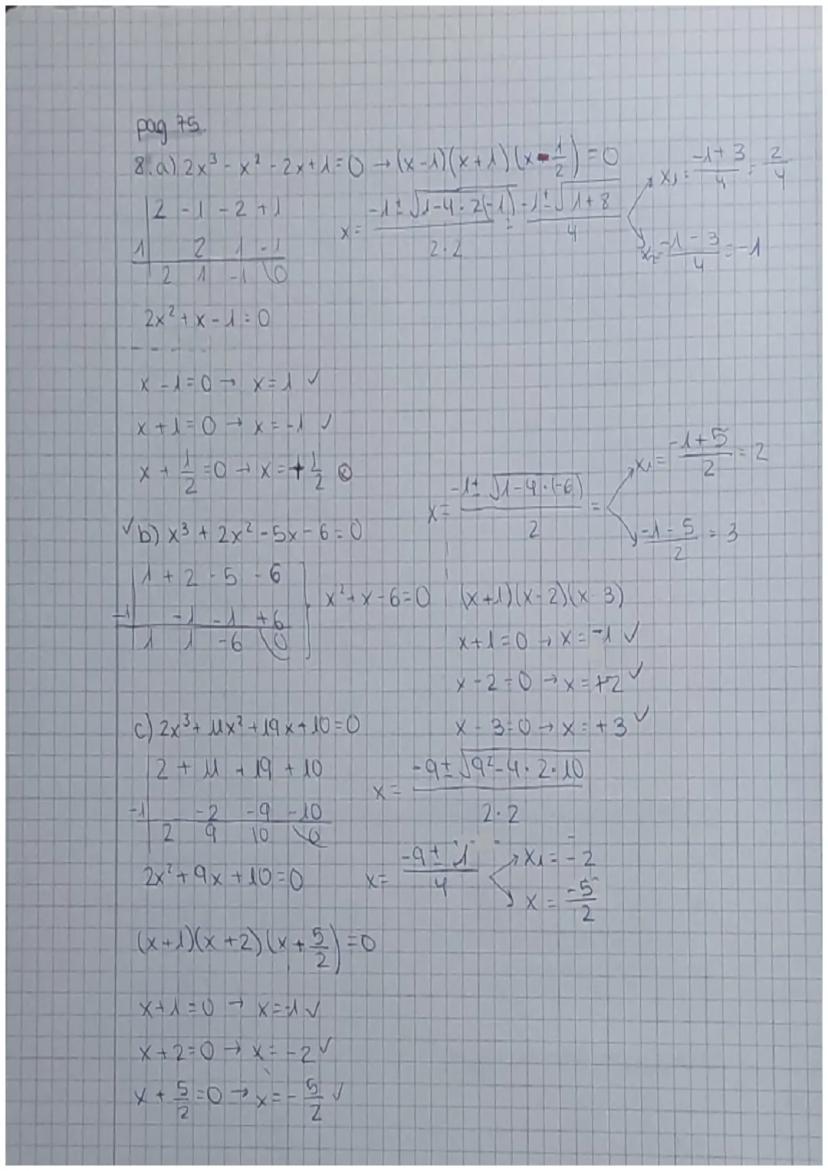 pag 75.
8. a) 2x³ - x² - 2x + 1 = 0 → (x-1)(x+1)(x-1/2) = 0
2 -1 -2 +1
1 2 1 -1
2 1 -1 0
x = (-1 ± √(1-4·2(-1)))/(2·2) = (-1 ± √(1+8))/4
x₁ = (-1+3)/4 = 2/4
x₂ = (-1-3)/4 = -1
2x² + x - 1 = 0
- - - - -
x - 1 = 0 → x = 1 ✓
x + 1 = 0 → x = -1 ✓
x + 1/2 = 0 → x = +1/2
✓ b) x³ + 2x² - 5x - 6 = 0
1 + 2 - 5 - 6
-1 -1 -1 +6
1 1 -6 0
x² + x - 6 = 0
x = (-1 ± √(1-4·(-6)))/2 =
x₁ = (-1+5)/2 = 2
(-1-5)/2 = 3
(x+1)(x-2)(x 3)
x+1 = 0 → x = -1 ✓
x - 2 = 0 → x = +2 ✓
x - 3 = 0 → x = +3 ✓
c) 2x³ + 11x² + 19x + 10 = 0
2 + 11 + 19 + 10
-1 -2 -9 -10
2 9 10 0
2x² + 9x + 10 = 0
x = (-9 ± √(9² - 4·2·10))/(2·2)
x = (-9 ± 1)/4
x₁ = -2
x = -5/2
(x+1)(x+2)(x+5/2) = 0
x+1 = 0 → x = -1 ✓
x+2 = 0 → x = -2 ✓
x + 5/2 = 0 → x = -5/2 ✓